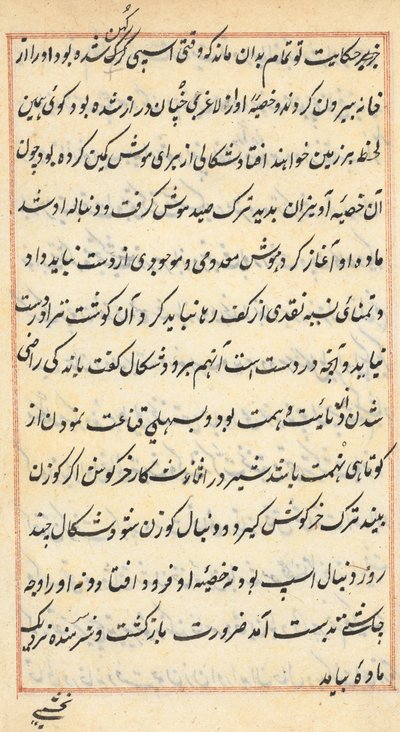 کهن
خر بر حکایت تو تمام بدان ماند که وقتی اسپی کرک شده بود او را از
خانه بیرون کردند و خصیهٔ او از لاغری چنان دراز شده بود کوئی همین
لحظه بر زمین خواهند افتاد شکالی از برای موش کمین کرده بود چون
آن خصیهٔ آویزان بدید ترک صید موش کرفت و دنباله او شد
مادهٔ او آغاز کرد موش معدومی و موجودی از دست نباید داد
و تمنای نسیه نقدی از کف رها نباید کرد آن کوشت ترا در دست
نیاید و آنچه در دست است آنهم برود شکال کفت باندکی راضی
شدن از دنائت همت بود و بسهلی قناعت نمودن از
کوتاهی نهمت باشد شیر در افتادن شکار خرکوش اکر کوزن
بیند ترک خرکوش کیرد و دنبال کوزن شود شکال چند
روز دنبال اسپ بود نه خصیهٔ او فرود افتاد و نه او را وجه
چاشتی بدست آمد ضرورت بازکشت و شرمنده نزدیک
مادهٔ بیامد
نخشبی